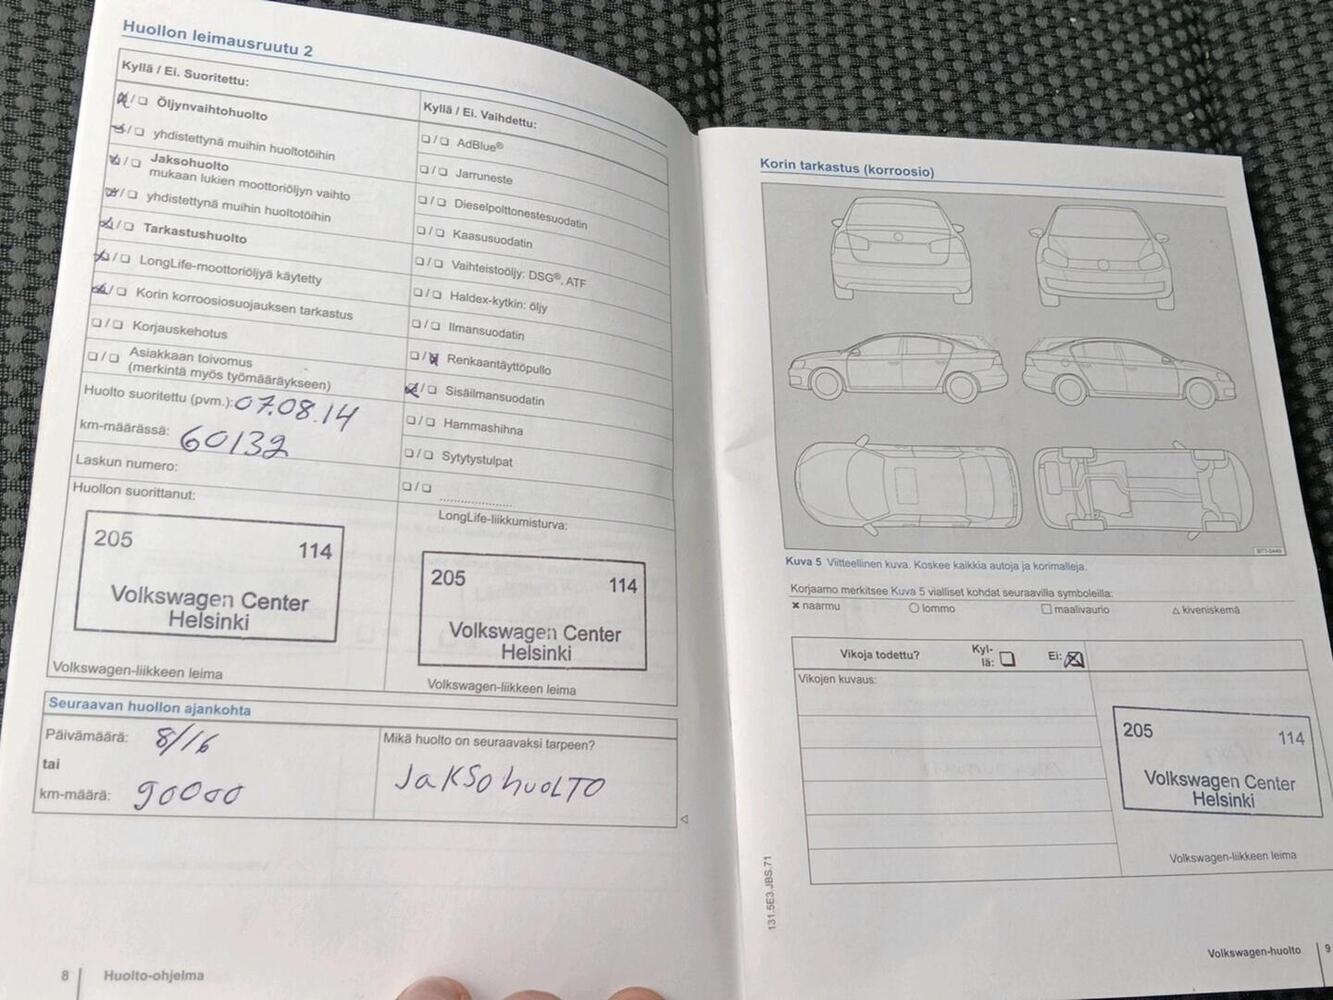 Huollon leimausruutu 2
Kyllä / Ei. Suoritettu:
Öljynvaihtohuolto
yhdistettynä muihin huoltotöihin
Jaksohuolto
mukaan lukien moottoriöljyn vaihto
yhdistettynä muihin huoltotöihin
Tarkastushuolto
LongLife-moottoriöljyä käytetty
Korin korroosiosuojauksen tarkastus
Korjauskehotus
Asiakkaan toivomus
(merkintä myös työmääräykseen)
Huolto suoritettu (pvm.): 07.08.14
km-määrässä: 60132
Laskun numero:
Huollon suorittanut:
205
114
Volkswagen Center
Helsinki
Volkswagen-liikkeen leima
Kyllä / Ei. Vaihdettu:
AdBlue®
Jarruneste
Dieselpolttonestesuodatin
Kaasusuodatin
Vaihteistoöljy: DSG®, ATF
Haldex-kytkin: öljy
Ilmansuodatin
Renkaantäyttöpullo
Sisäilmansuodatin
Hammashihna
Sytytystulpat
LongLife-liikkumisturva:
205
114
Volkswagen Center
Helsinki
Volkswagen-liikkeen leima
Seuraavan huollon ajankohta
Päivämäärä: 8/16
tai
km-määrä: 90000
Mikä huolto on seuraavaksi tarpeen?
JAKSOhuOLTO
8 Huolto-ohjelma
Korin tarkastus (korroosio)
Kuva 5 Viitteellinen kuva. Koskee kaikkia autoja ja korimalleja.
Korjaamo merkitsee Kuva 5 vialliset kohdat seuraavilla symboleilla:
naarmu lommo maalivaurio kiveniskemä
Vikoja todettu? Kyl-
lä: Ei:
Vikojen kuvaus:
205
114
Volkswagen Center
Helsinki
Volkswagen-liikkeen leima
131.5E3.JBS.71
Volkswagen-huolto 9